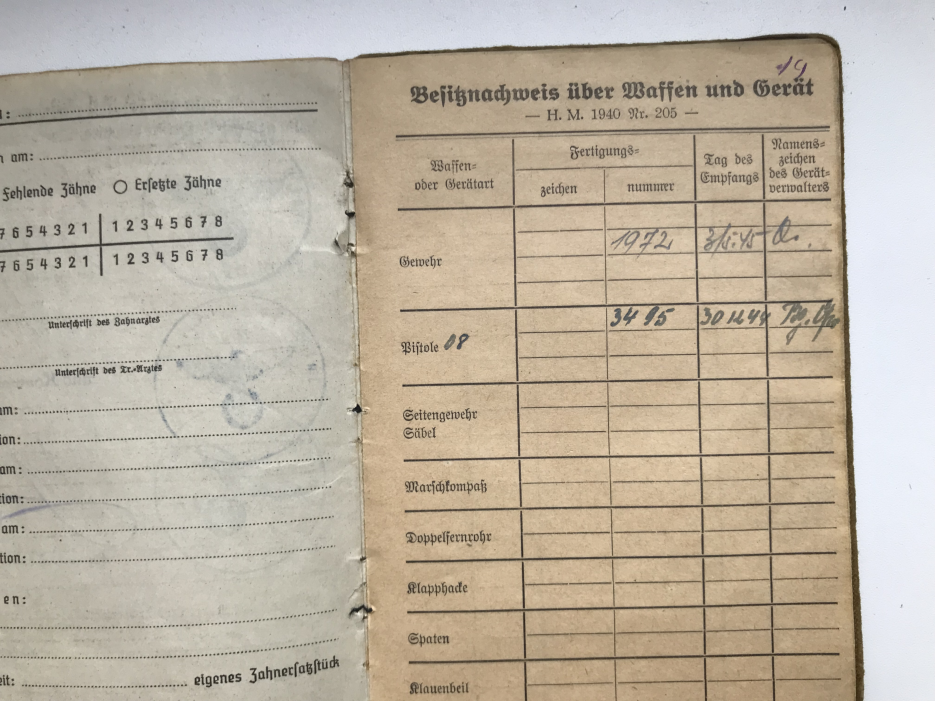 n am:
Fehlende Zähne ○ Ersetzte Zähne
7 6 5 4 3 2 1 | 1 2 3 4 5 6 7 8
7 6 5 4 3 2 1 | 1 2 3 4 5 6 7 8
Unterschrift des Zahnarztes
Unterschrift des Tr.-Arztes
am:
tion:
am:
tion:
am:
tion:
en:
eit: eigenes Zahnersatzstück
19
Besitznachweis über Waffen und Gerät
— H. M. 1940 Nr. 205 —
Waffen-
oder Gerätart
Fertigungs-
zeichen
nummer
Tag des
Empfangs
Namens-
zeichen
des Gerät-
verwalters
Gewehr 1972
Pistole 08 3495 30 12 44
Seitengewehr
Säbel
Marschkompaß
Doppelfernrohr
Klapphacke
Spaten
Klauenbeil